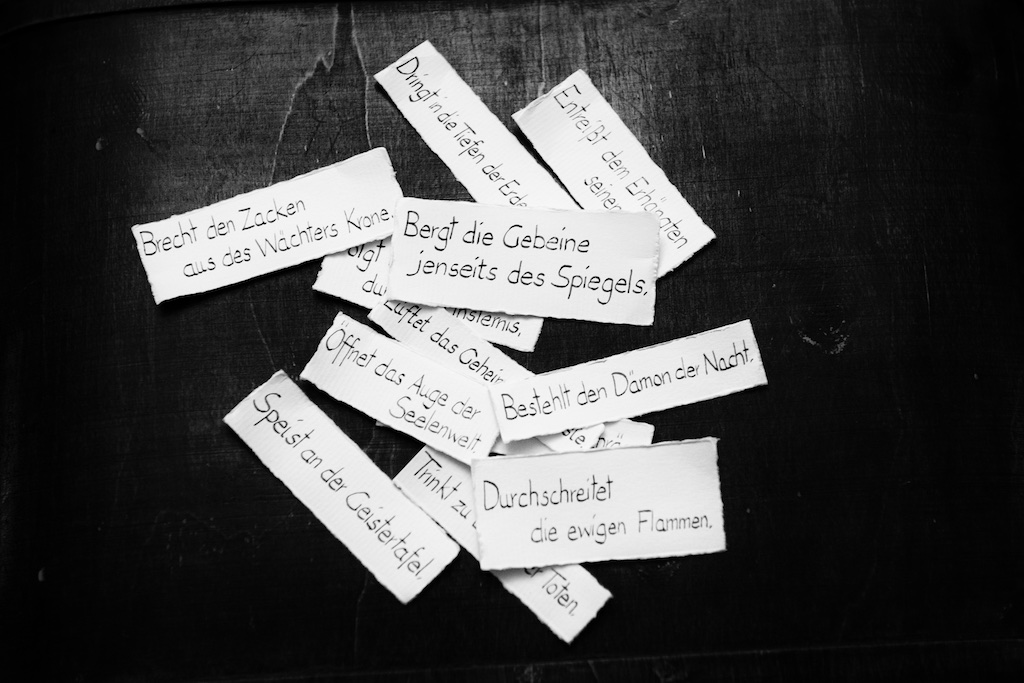 Dringt in die Tiefen der Erde
Entreißt dem Erhängten
seinen
Brecht den Zacken
aus des Wächters Krone.
Bergt die Gebeine
jenseits des Spiegels.
Lüftet das
Öffnet das Auge der
Seelenwelt.
Bestehlt den Dämon der Nacht.
Speist an der Geistertafel.
Trinkt zu
Toten.
Durchschreitet
die ewigen Flammen.